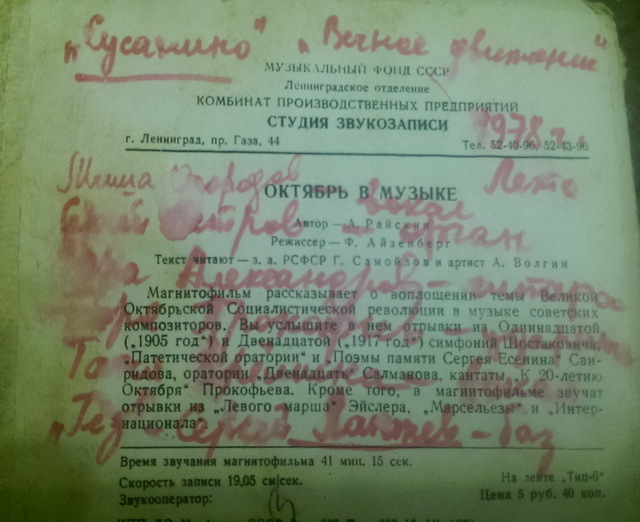 „Сусанино" „Вечное движение"
МУЗЫКАЛЬНЫЙ ФОНД СССР
Ленинградское отделение
КОМБИНАТ ПРОИЗВОДСТВЕННЫХ ПРЕДПРИЯТИЙ
СТУДИЯ ЗВУКОЗАПИСИ
1978 г.
г. Ленинград, пр. Газа, 44 Тел. 52-40-96, 52-43-96
Миша Лето
ОКТЯБРЬ В МУЗЫКЕ
Автор — А. Райский
Режиссер — Ф. Айзенберг
Текст читают — з. а. РСФСР Г. Самойлов и артист А. Волгин
Александров - гитара
Магнитофильм рассказывает о воплощении темы Великой
Октябрьской Социалистической революции в музыке советских
композиторов. Вы услышите в нем отрывки из Одиннадцатой
(„1905 год") и Двенадцатой („1917 год") симфоний Шостаковича,
„Патетической оратории" и „Поэмы памяти Сергея Есенина" Сви-
ридова, оратории „Двенадцать" Салманова, кантаты „К 20-летию
Октября" Прокофьева. Кроме того, в магнитофильме звучат
отрывки из „Левого марша" Эйслера, „Марсельезы" и „Интер-
национала".
Сергей Лаптев - бас
Время звучания магнитофильма 41 мин. 15 сек.
Скорость записи 19,05 см/сек. На ленте „Тип-6"
Звукооператор: Цена 5 руб. 40 коп.